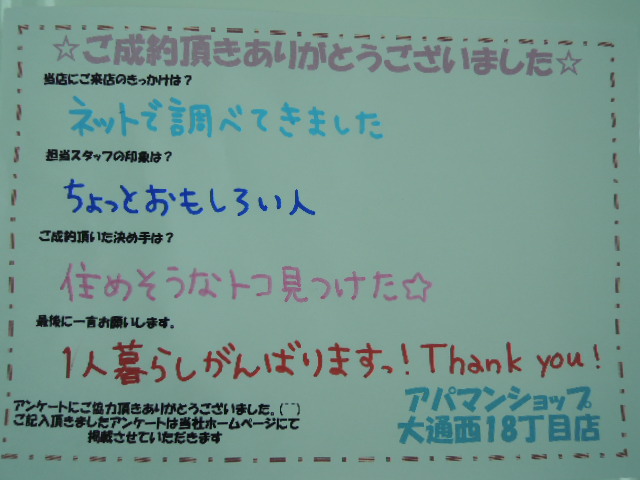 ☆ご成約頂きありがとうございました☆
当店にご来店のきっかけは？
ネットで調べてきました
担当スタッフの印象は？
ちょっとおもしろい人
ご成約頂いた決め手は？
住めそうなトコ見つけた☆
最後に一言お願いします。
1人暮らしがんばりますっ！Thank you！
アンケートにご協力頂きありがとうございました。(⌒⌒)
ご記入頂きましたアンケートは当社ホームページにて
掲載させていただきます
アパマンショップ
大通西18丁目店